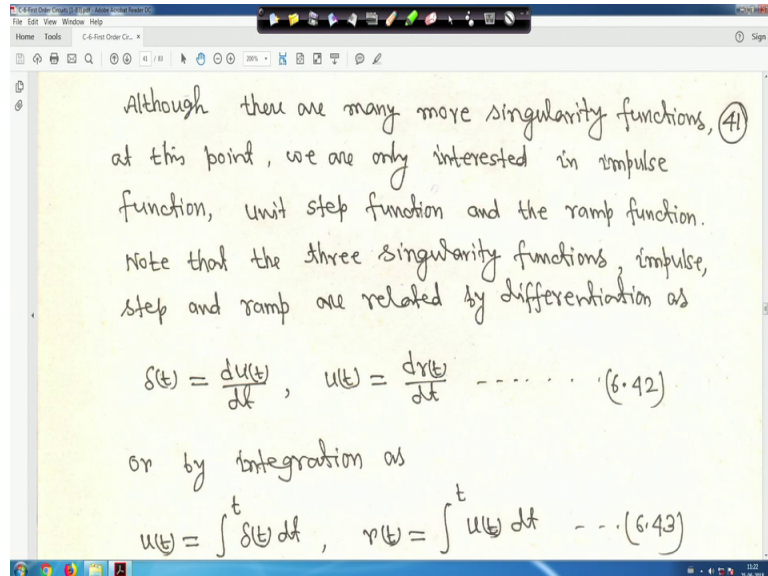 C-6-First Order Circuits (1-83).pdf - Adobe Acrobat Reader DC
File Edit View Window Help
Home Tools C-6-First Order Cir... × Sign
41 / 83 200%
Although there are many more singularity functions, (41)
at this point, we are only interested in impulse
function, unit step function and the ramp function.
Note that the three singularity functions, impulse,
step and ramp are related by differentiation as
δ(t) = du(t)/dt , u(t) = dr(t)/dt ------- (6.42)
or by integration as
u(t) = ∫^t δ(t) dt , r(t) = ∫^t u(t) dt ---(6.43)
11:22